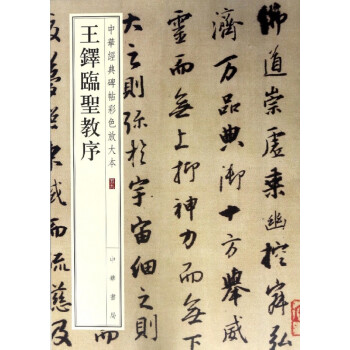 中華經典碑帖彩色放大本
王鐸臨聖教序
中華書局
佛道崇虛乘幽控寂弘
濟万品典御十方舉威
靈而無上抑神力而無下
大之則弥於宇宙細之則
皎夢照東域而流慈及